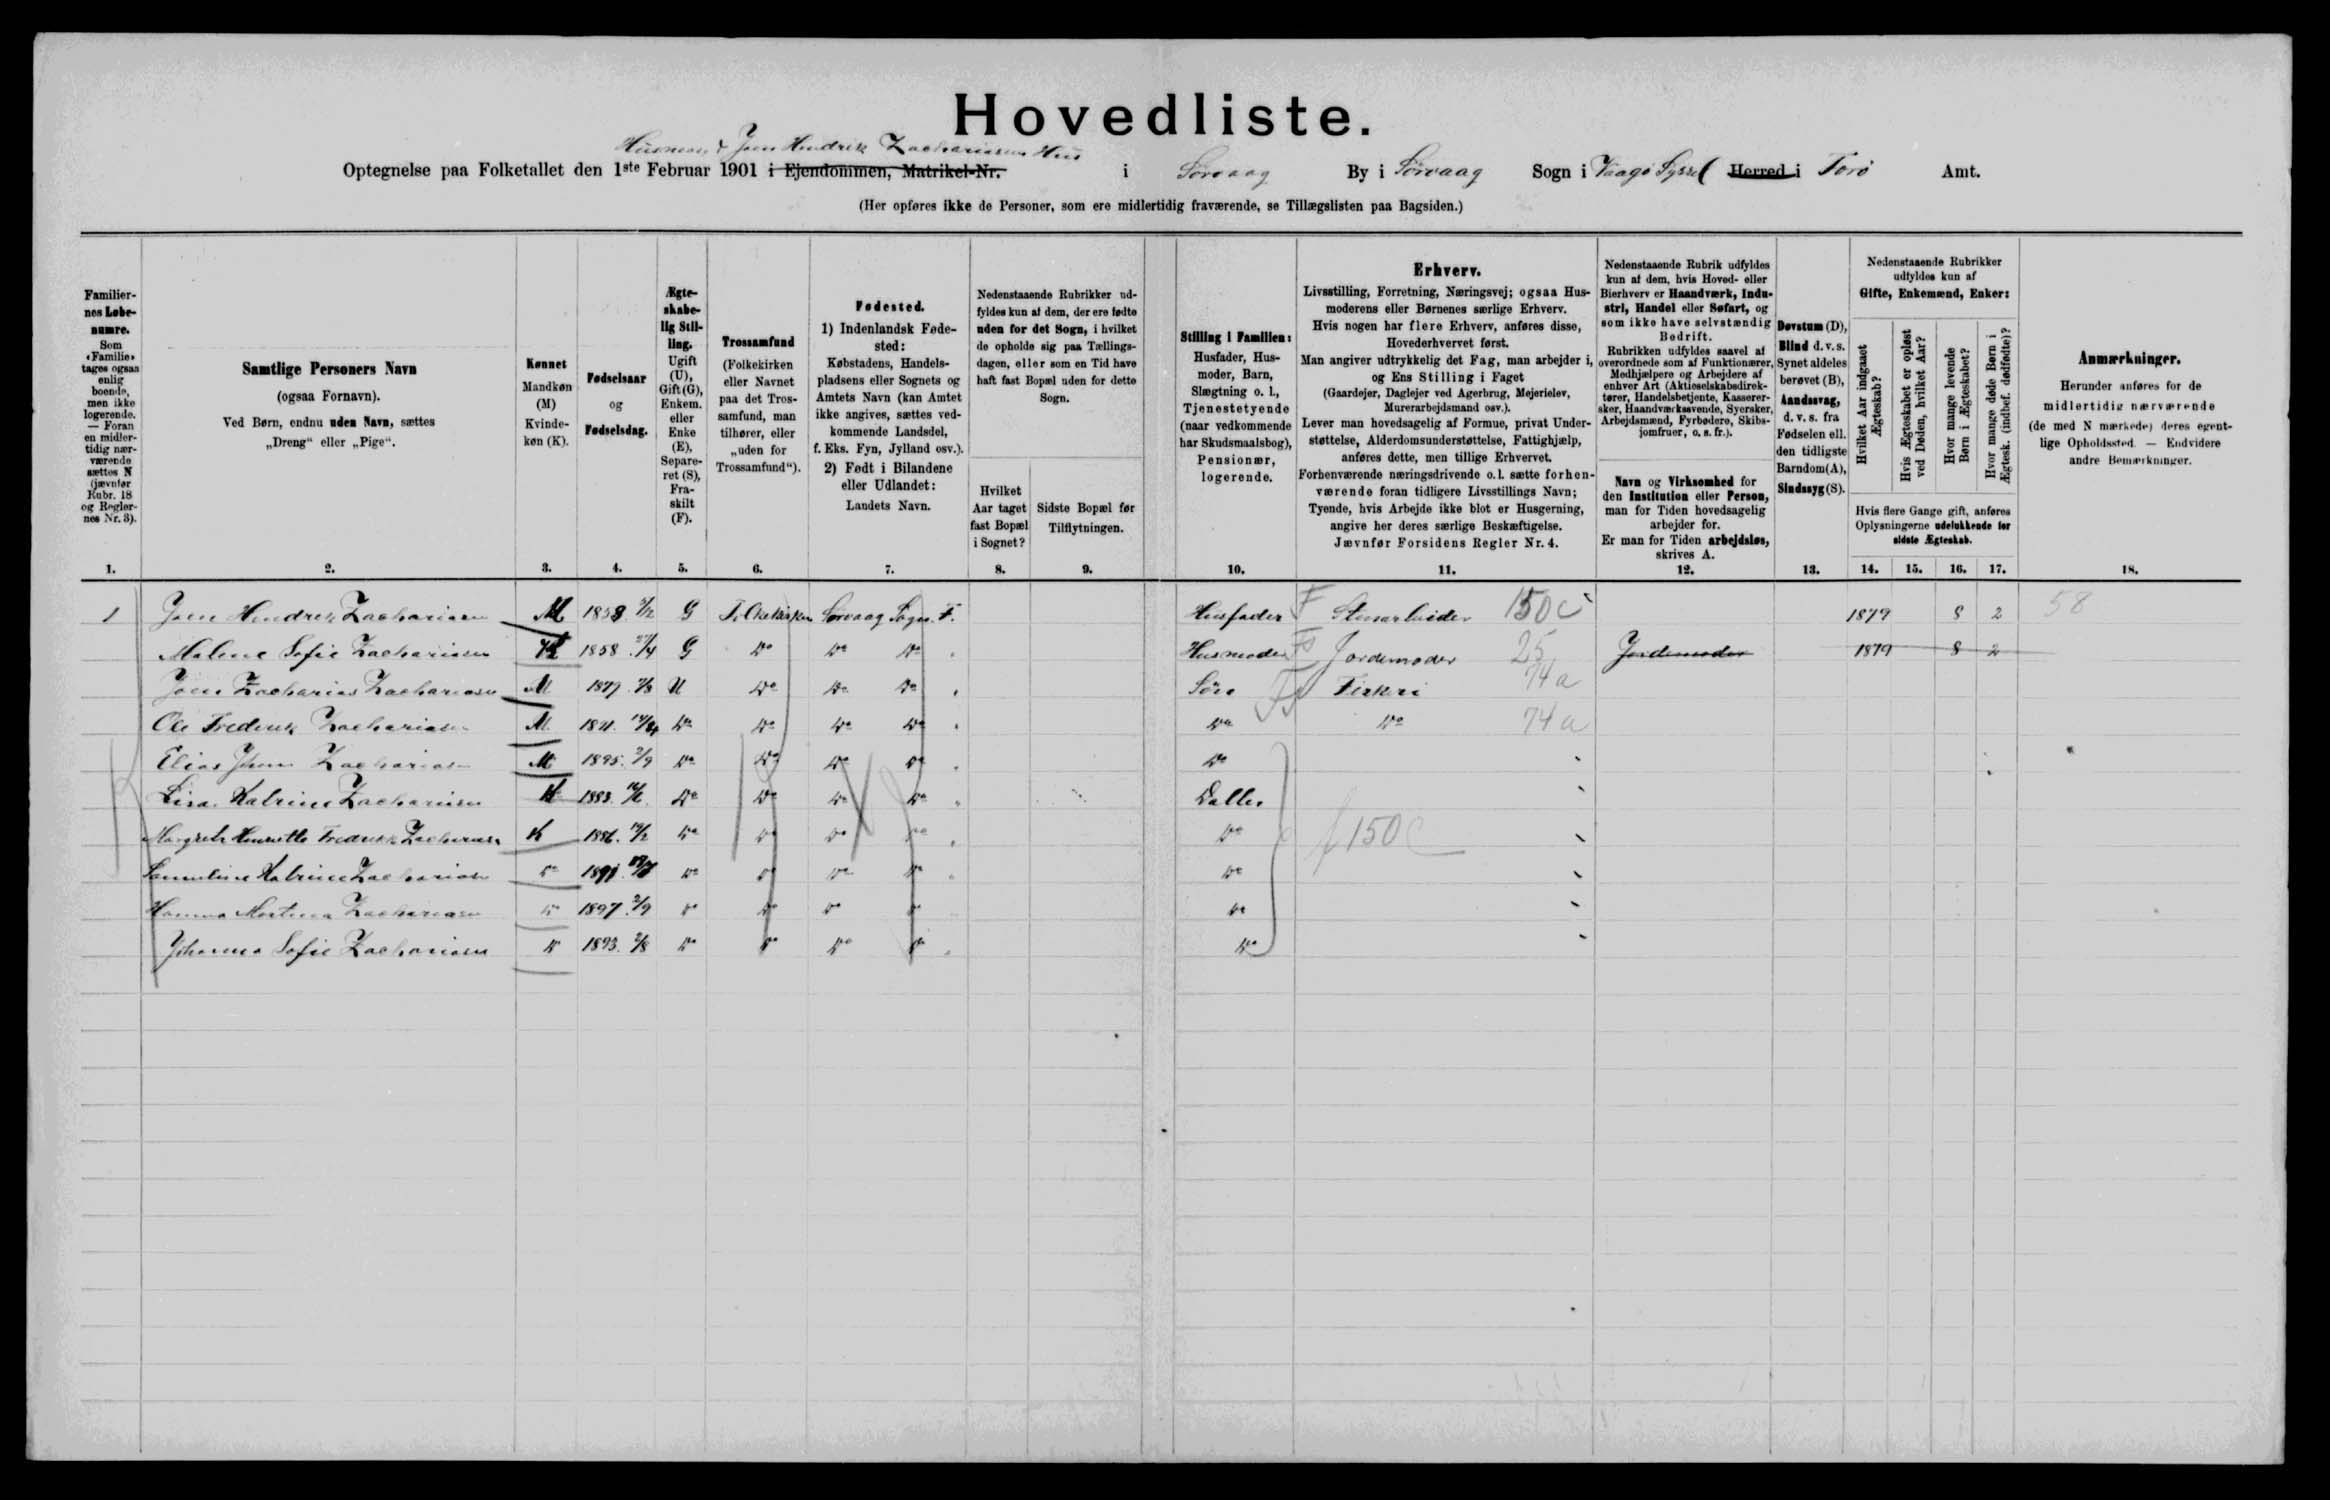 Hovedliste.
Husmand Joen Hendrik Zachariasens Hus
Optegnelse paa Folketallet den 1ste Februar 1901 i Ejendommen, Matrikel-Nr. i Sörvaag By i Sörvaag Sogn i Vaagø Syssel Herred i Færø Amt.
(Her opføres ikke de Personer, som ere midlertidig fraværende, se Tillægslisten paa Bagsiden.)
Familiernes Løbenumre.
Som «Familie» tages ogsaa enlig boende, men ikke logerende. — Foran en midlertidig nærværende sættes N (jævnfør Rubr. 18 og Reglernes Nr. 3).
Samtlige Personers Navn
(ogsaa Fornavn).
Ved Børn, endnu uden Navn, sættes
„Dreng“ eller „Pige“.
Kønnet
Mandkøn (M)
Kvindekøn (K).
Fødselsaar
og
Fødselsdag.
Ægteskabelig Stilling.
Ugift (U), Gift (G), Enkem. eller Enke (E), Separeret (S), Fraskilt (F).
Trossamfund
(Folkekirken eller Navnet paa det Trossamfund, man tilhører, eller „uden for Trossamfund“).
Fødested.
1) Indenlandsk Fødested:
Købstadens, Handelspladsens eller Sognets og Amtets Navn (kan Amtet ikke angives, sættes vedkommende Landsdel, f. Eks. Fyn, Jylland osv.).
2) Født i Bilandene eller Udlandet:
Landets Navn.
Nedenstaaende Rubrikker udfyldes kun af dem, der ere fødte uden for det Sogn, i hvilket de opholde sig paa Tællingsdagen, eller som en Tid have haft fast Bopæl uden for dette Sogn.
Hvilket Aar taget fast Bopæl i Sognet?
Sidste Bopæl før Tilflytningen.
Stilling i Familien:
Husfader, Husmoder, Barn, Slægtning o. l., Tjenestetyende (naar vedkommende har Skudsmaalsbog), Pensionær, logerende.
Erhverv.
Livsstilling, Forretning, Næringsvej; ogsaa Husmoderens eller Børnenes særlige Erhverv.
Hvis nogen har flere Erhverv, anføres disse, Hovederhvervet først.
Man angiver udtrykkelig det Fag, man arbejder i, og Ens Stilling i Faget
(Gaardejer, Daglejer ved Agerbrug, Mejerielev, Murerarbejdsmand osv.).
Lever man hovedsagelig af Formue, privat Understøttelse, Alderdomsunderstøttelse, Fattighjælp, anføres dette, men tillige Erhvervet.
Forhenværende næringsdrivende o. l. sætte forhenværende foran tidligere Livsstillings Navn;
Tyende, hvis Arbejde ikke blot er Husgerning, angive her deres særlige Beskæftigelse.
Jævnfør Forsidens Regler Nr. 4.
Nedenstaaende Rubrik udfyldes kun af dem, hvis Hoved- eller Bierhverv er Haandværk, Industri, Handel eller Søfart, og som ikke have selvstændig Bedrift.
Rubrikken udfyldes saavel af overordnede som af Funktionærer, Medhjælpere og Arbejdere af enhver Art (Aktieselskabsdirektører, Handelsbetjente, Kasserersker, Haandværkssvende, Syersker, Arbejdsmænd, Fyrbødere, Skibsjomfruer, o. s. fr.).
Navn og Virksomhed for den Institution eller Person, man for Tiden hovedsagelig arbejder for.
Er man for Tiden arbejdsløs, skrives A.
Døvstum (D), Blind d. v. s. Synet aldeles berøvet (B), Aandssvag, d. v. s. fra Fødselen ell. den tidligste Barndom (A), Sindssyg (S).
Nedenstaaende Rubrikker udfyldes kun af
Gifte, Enkemænd, Enker:
Hvilket Aar indgaaet Ægteskab?
Hvis Ægteskabet er opløst ved Døden, hvilket Aar?
Hvor mange levende Børn i Ægteskabet?
Hvor mange døde Børn i Ægtesk. (indbef. dødfødte)?
Hvis flere Gange gift, anføres Oplysningerne udelukkende for sidste Ægteskab.
Anmærkninger.
Herunder anføres for de midlertidig nærværende (de med N mærkede) deres egentlige Opholdssted. — Endvidere andre Bemærkninger.
1. 2. 3. 4. 5. 6. 7. 8. 9. 10. 11. 12. 13. 14. 15. 16. 17. 18.
1 Joen Hendrik Zachariasen M 1858 G Folkekirken Sörvaag Sogn. F. Husfader F 150 c 1879 8 2 58
Malene Sofie Zachariasen K 1858 27/4 G Do Do Do Husmoder Jordemoder 25 Jordemoder 1879 8 2
Joen Zacharias Zachariasen M 1879 U Do Do Do Sön Fiskeri 74 a
Ole Frederik Zachariasen M. Do Do Do Do Do Do 74 a
Elias Zachariasen M 1895 2/9 Do Do Do Do Do
Lisa Katrine Zachariasen K 1883 Do Do Do Do Datter
Margrethe Henriette Fredrikke Zachariasen K 1886 Do Do Do Do Do f 150 c
Katrine Zachariasen Do Do Do Do Do Do
Hanna Zachariasen Do 1897 2/9 Do Do Do Do Do
Johanna Sofie Zachariasen Do 1893 2/8 Do Do Do Do Do